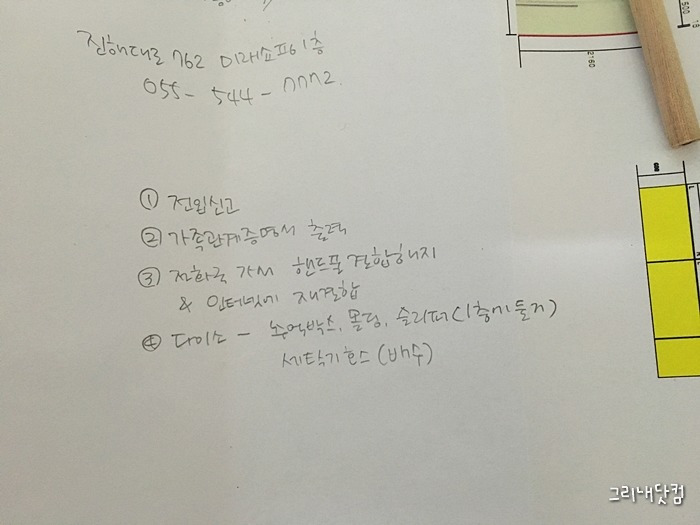 진해대로 762 미래쇼핑 1층
055 - 544 - 7772
① 전입신고
② 가족관계증명서 출력
③ 전화국 가서 핸드폰 결합해지
& 인터넷에 재결합
④ 다이소 - 추억박스, 몰딩, 슬리퍼(1층에 둘거)
세탁기호스(배수)
2160
500
그리내닷컴